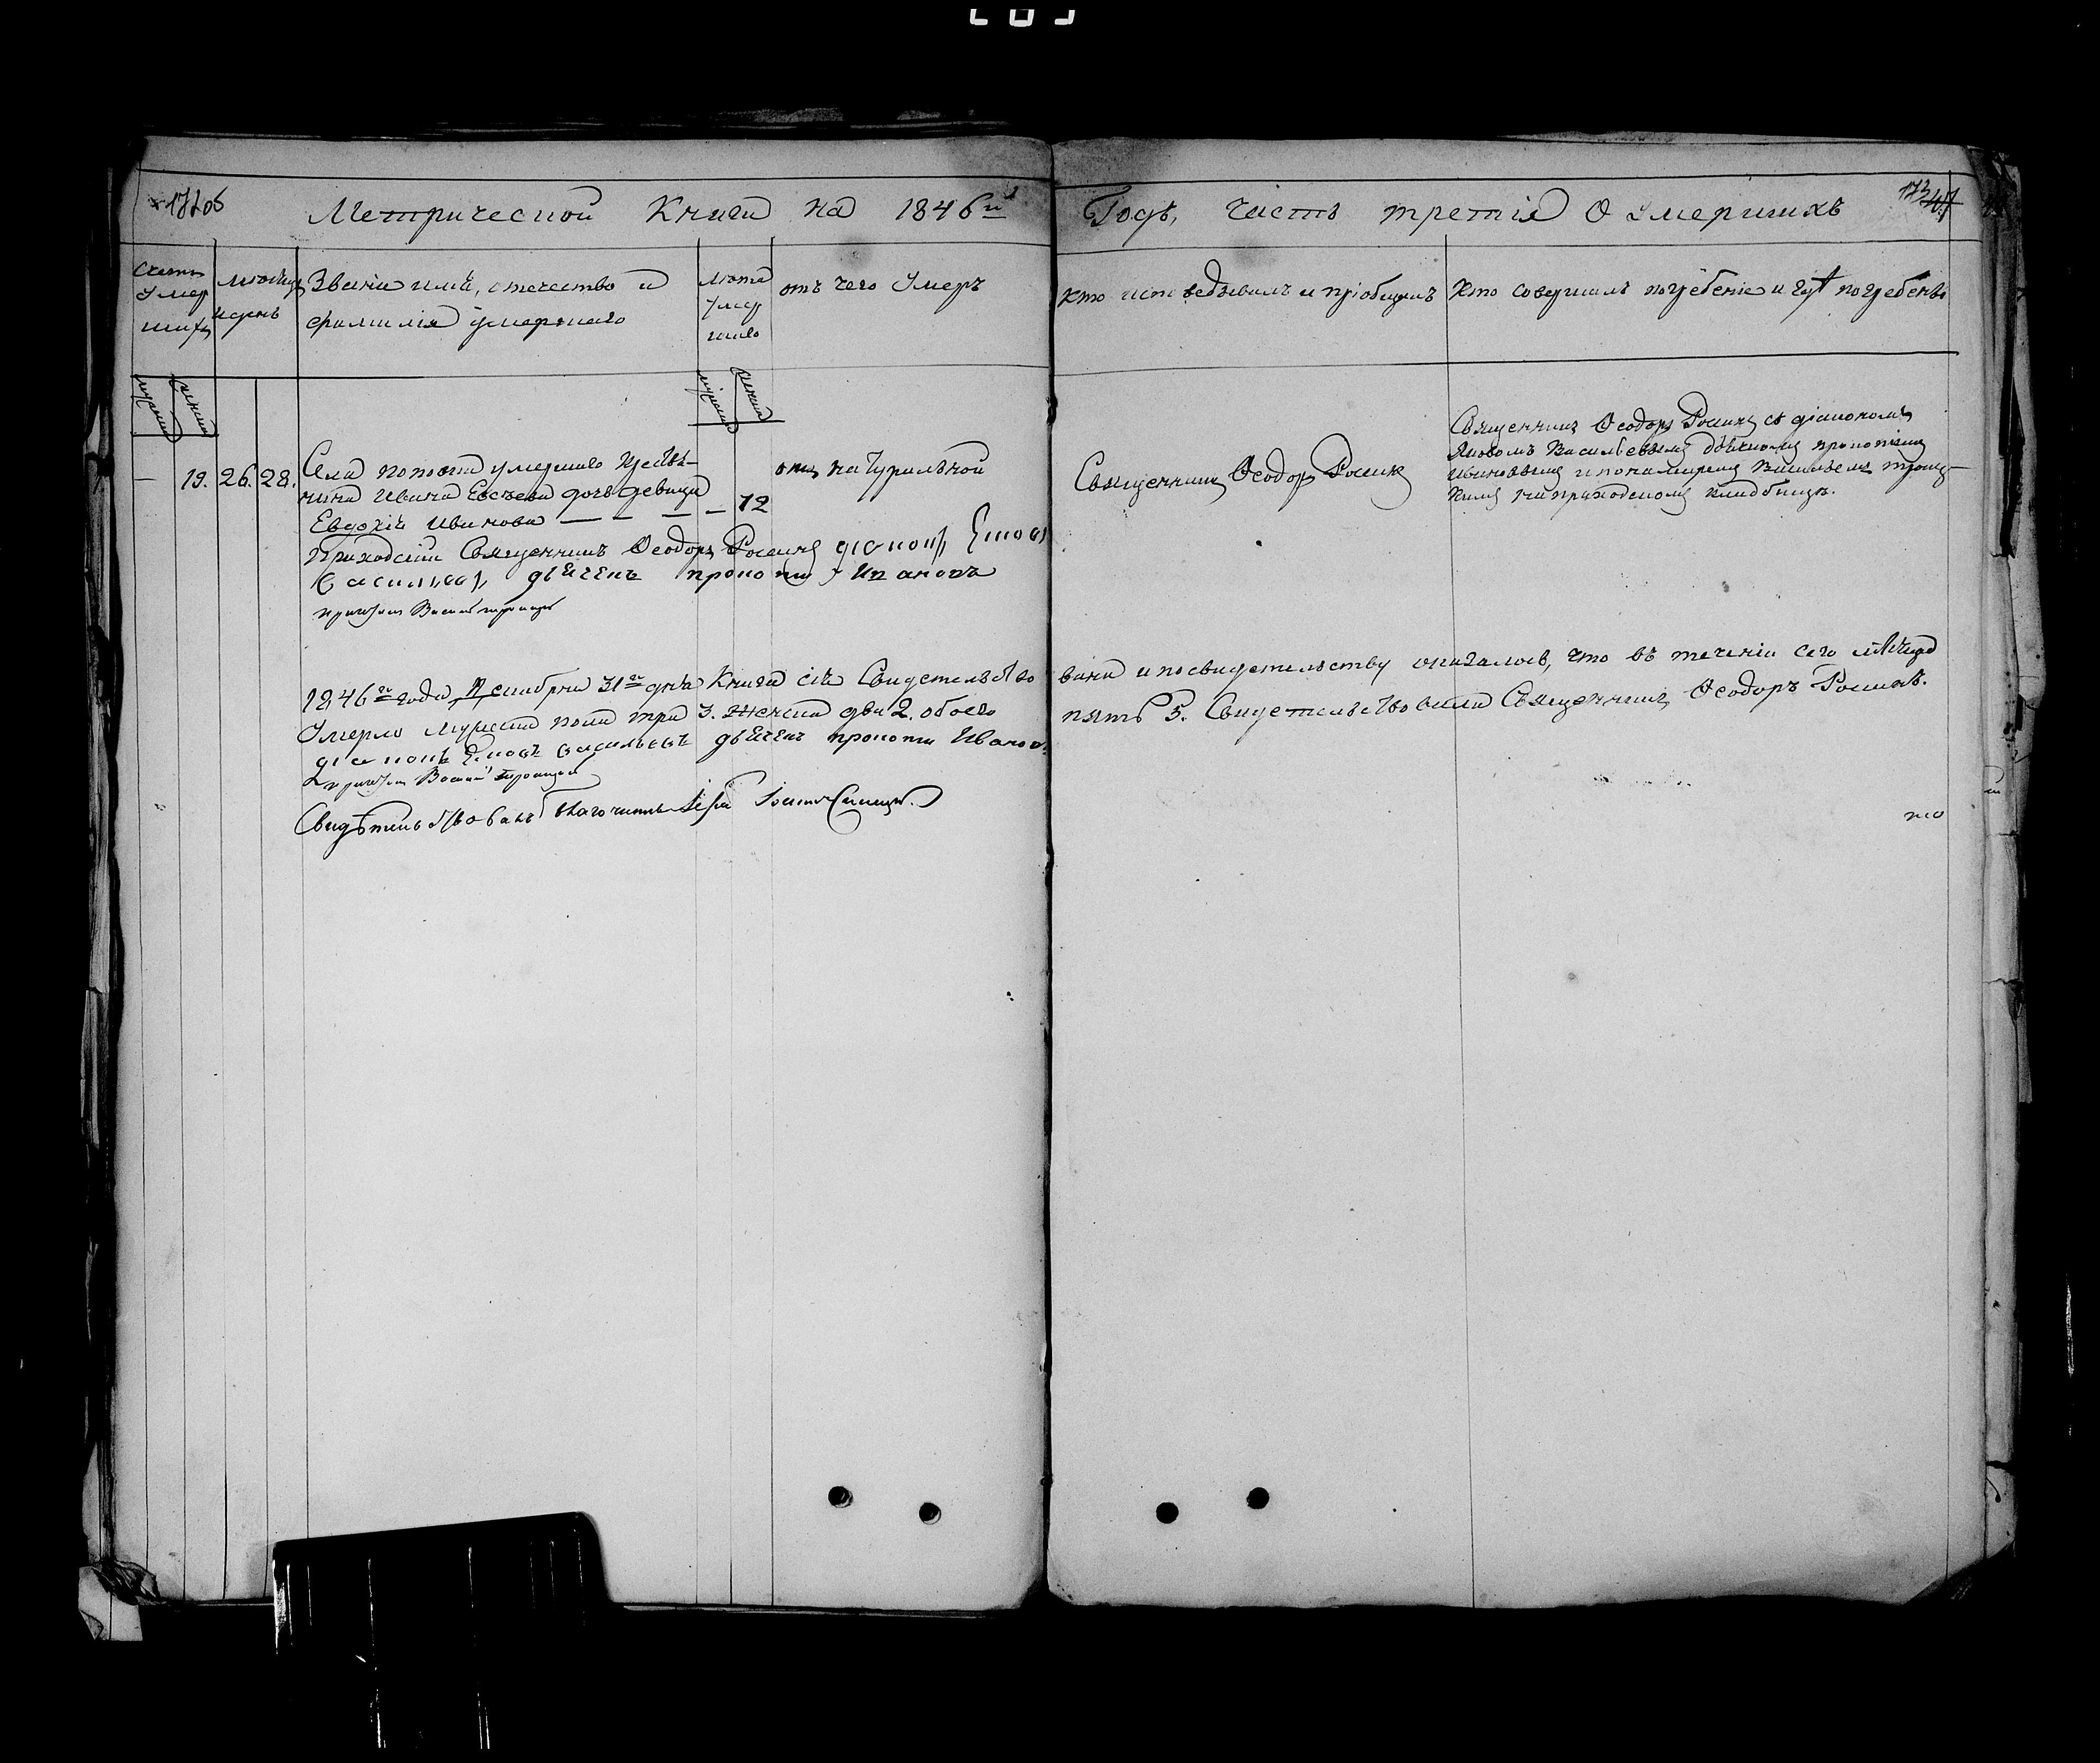 Метрической Книги на 1846й Годъ, часть третія О умершихъ
173
Счетъ умершихъ
Мѣсяцъ и день
Званіе имя, отечество и фамилія умершаго
Лѣта умершаго
отъ чего умеръ
кто исповедывалъ и пріобщилъ
кто совершалъ погребеніе и гдѣ погребены
мужеска
женска
мужеска
женска
— 19. 26. 28.
Села погоста умершаго крестья-
нина Ивана Евсѣева дочь девица
Евдокія Иванова — — — — 12
отъ натуральной
Священникъ Ѳеодоръ Росинъ
Священникъ Ѳеодоръ Росинъ съ діакономъ
Яковомъ Васильевымъ дьячкомъ Прокопіемъ
Ивановымъ и пономаремъ Васильемъ Троиц-
кимъ на приходскомъ кладбищѣ.
Приходскій Священникъ Ѳеодоръ Росинъ діаконъ Яковъ
Васильевъ, дьячекъ Прокопій Ивановъ
Василій Троицкій
1846го года Декабря 31го дня Книга сія Свидетельство
вана и по свидетельству оказалось, что въ теченіи сего мѣсяца
Умерло мужеска пола три 3. женска два 2. обоего
пять 5. Свидетельствовали Священникъ Ѳеодоръ Росинъ.
діаконъ Яковъ Васильевъ дьячекъ Прокопій Ивановъ
Василій Троицкій
Свидѣтельствовалъ благочинный